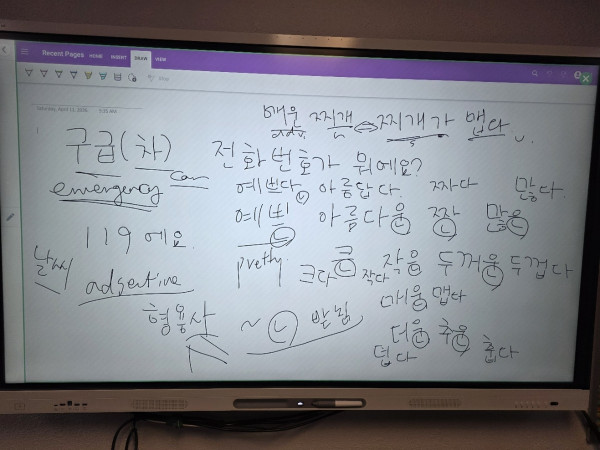 Recent Pages HOME INSERT DRAW VIEW
매운 찌개 찌개가 맵다
adv. n s v.
구급(차) 전화번호가 뭐에요?
emergency car
예쁘다 아름답다. 짜다 많다.
예쁜 아름다운 짠 많은
119에요. pretty. 큰 작은 두꺼운 두껍다
크다 작다
날씨 adjective 매운 맵다
형용사 ~ㄴ 받침 더운 추운
덥다 춥다